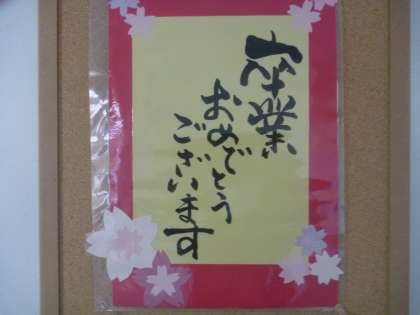 卒業
おめでとう
ございます